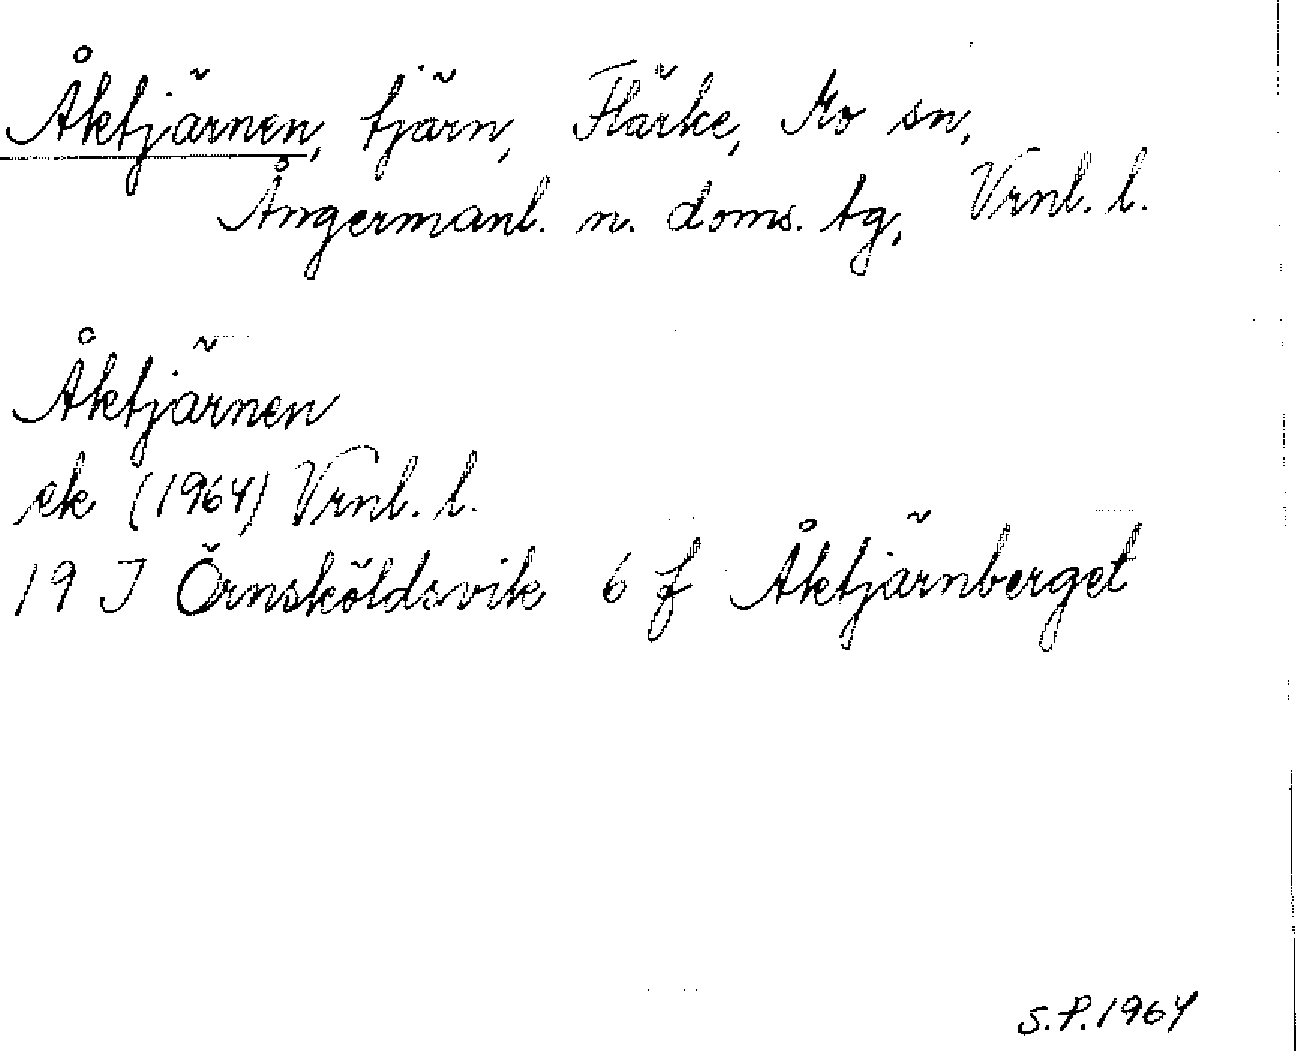 Åktjärnen, tjärn, Flärke, Mo sn,
Ångermanl. n. doms. tg, Vrnl. l.
Åktjärnen
ek (1964) Vrnl. l.
19 J Örnsköldsvik 6 f Åktjärnberget
S.P. 1964